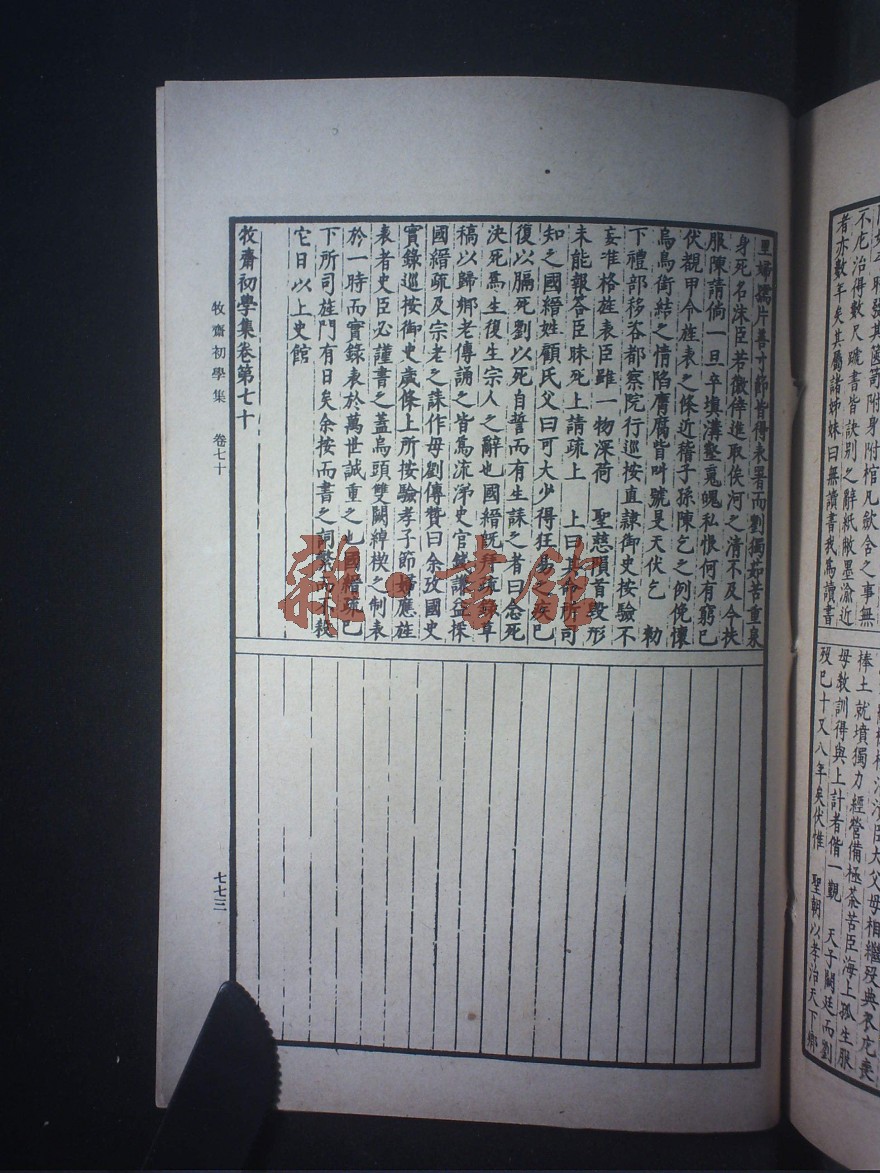 里婦孺片善寸節皆得表署而劉獨茹苦重泉
身死名沫臣若徼倖進取俟河之清不及今扶
服陳請倘一旦卒填溝壑䰟魄私恨何有窮已
伏覩甲令旌表之條近稽子孫陳乞之例俛懷
烏鳥銜結之情陷膺腐皆叫號旻天伏乞 勑
下禮部移咨都察院行巡按直隸御史按驗不
妄准格旌表臣雖一物深荷 聖慈隕首毀形
未能報答臣昧死上請疏上 上曰其命所司
知之國縉姓顧氏父曰可大少得狂易之疾巳
復以膈死劉以死自誓而有生誄之者曰念死
決死焉生復生宗人之辭也國縉既拜疏錄草
稿以歸鄉老傳誦之皆為流涕史官錢謙益採
國縉疏及宗老之誄作母劉傳贊曰余攷國史
實錄巡按御史歲條上所按驗孝子節婦應旌
表者史臣必謹書之蓋烏頭雙闕綽楔之制表
於一時而實錄表於萬世誠重之也國縉疏巳
下所司旌門有日矣余按而書之詞繁而不殺
它日以上史館
牧齋初學集卷第七十
牧齋初學集 卷七十
七七三
者亦數年矣其屬諸姊妹曰無讀書我為讀書
不庀治得數尺㯋書皆訣別之辭紙敝墨渝近
捧土就墳獨力經營備極荼苦臣海上孤生服
母教訓得與上計者偕一觀 天子闕廷而劉
歿巳十又八年矣伏惟 聖朝以孝治天下鄉
雜·書館